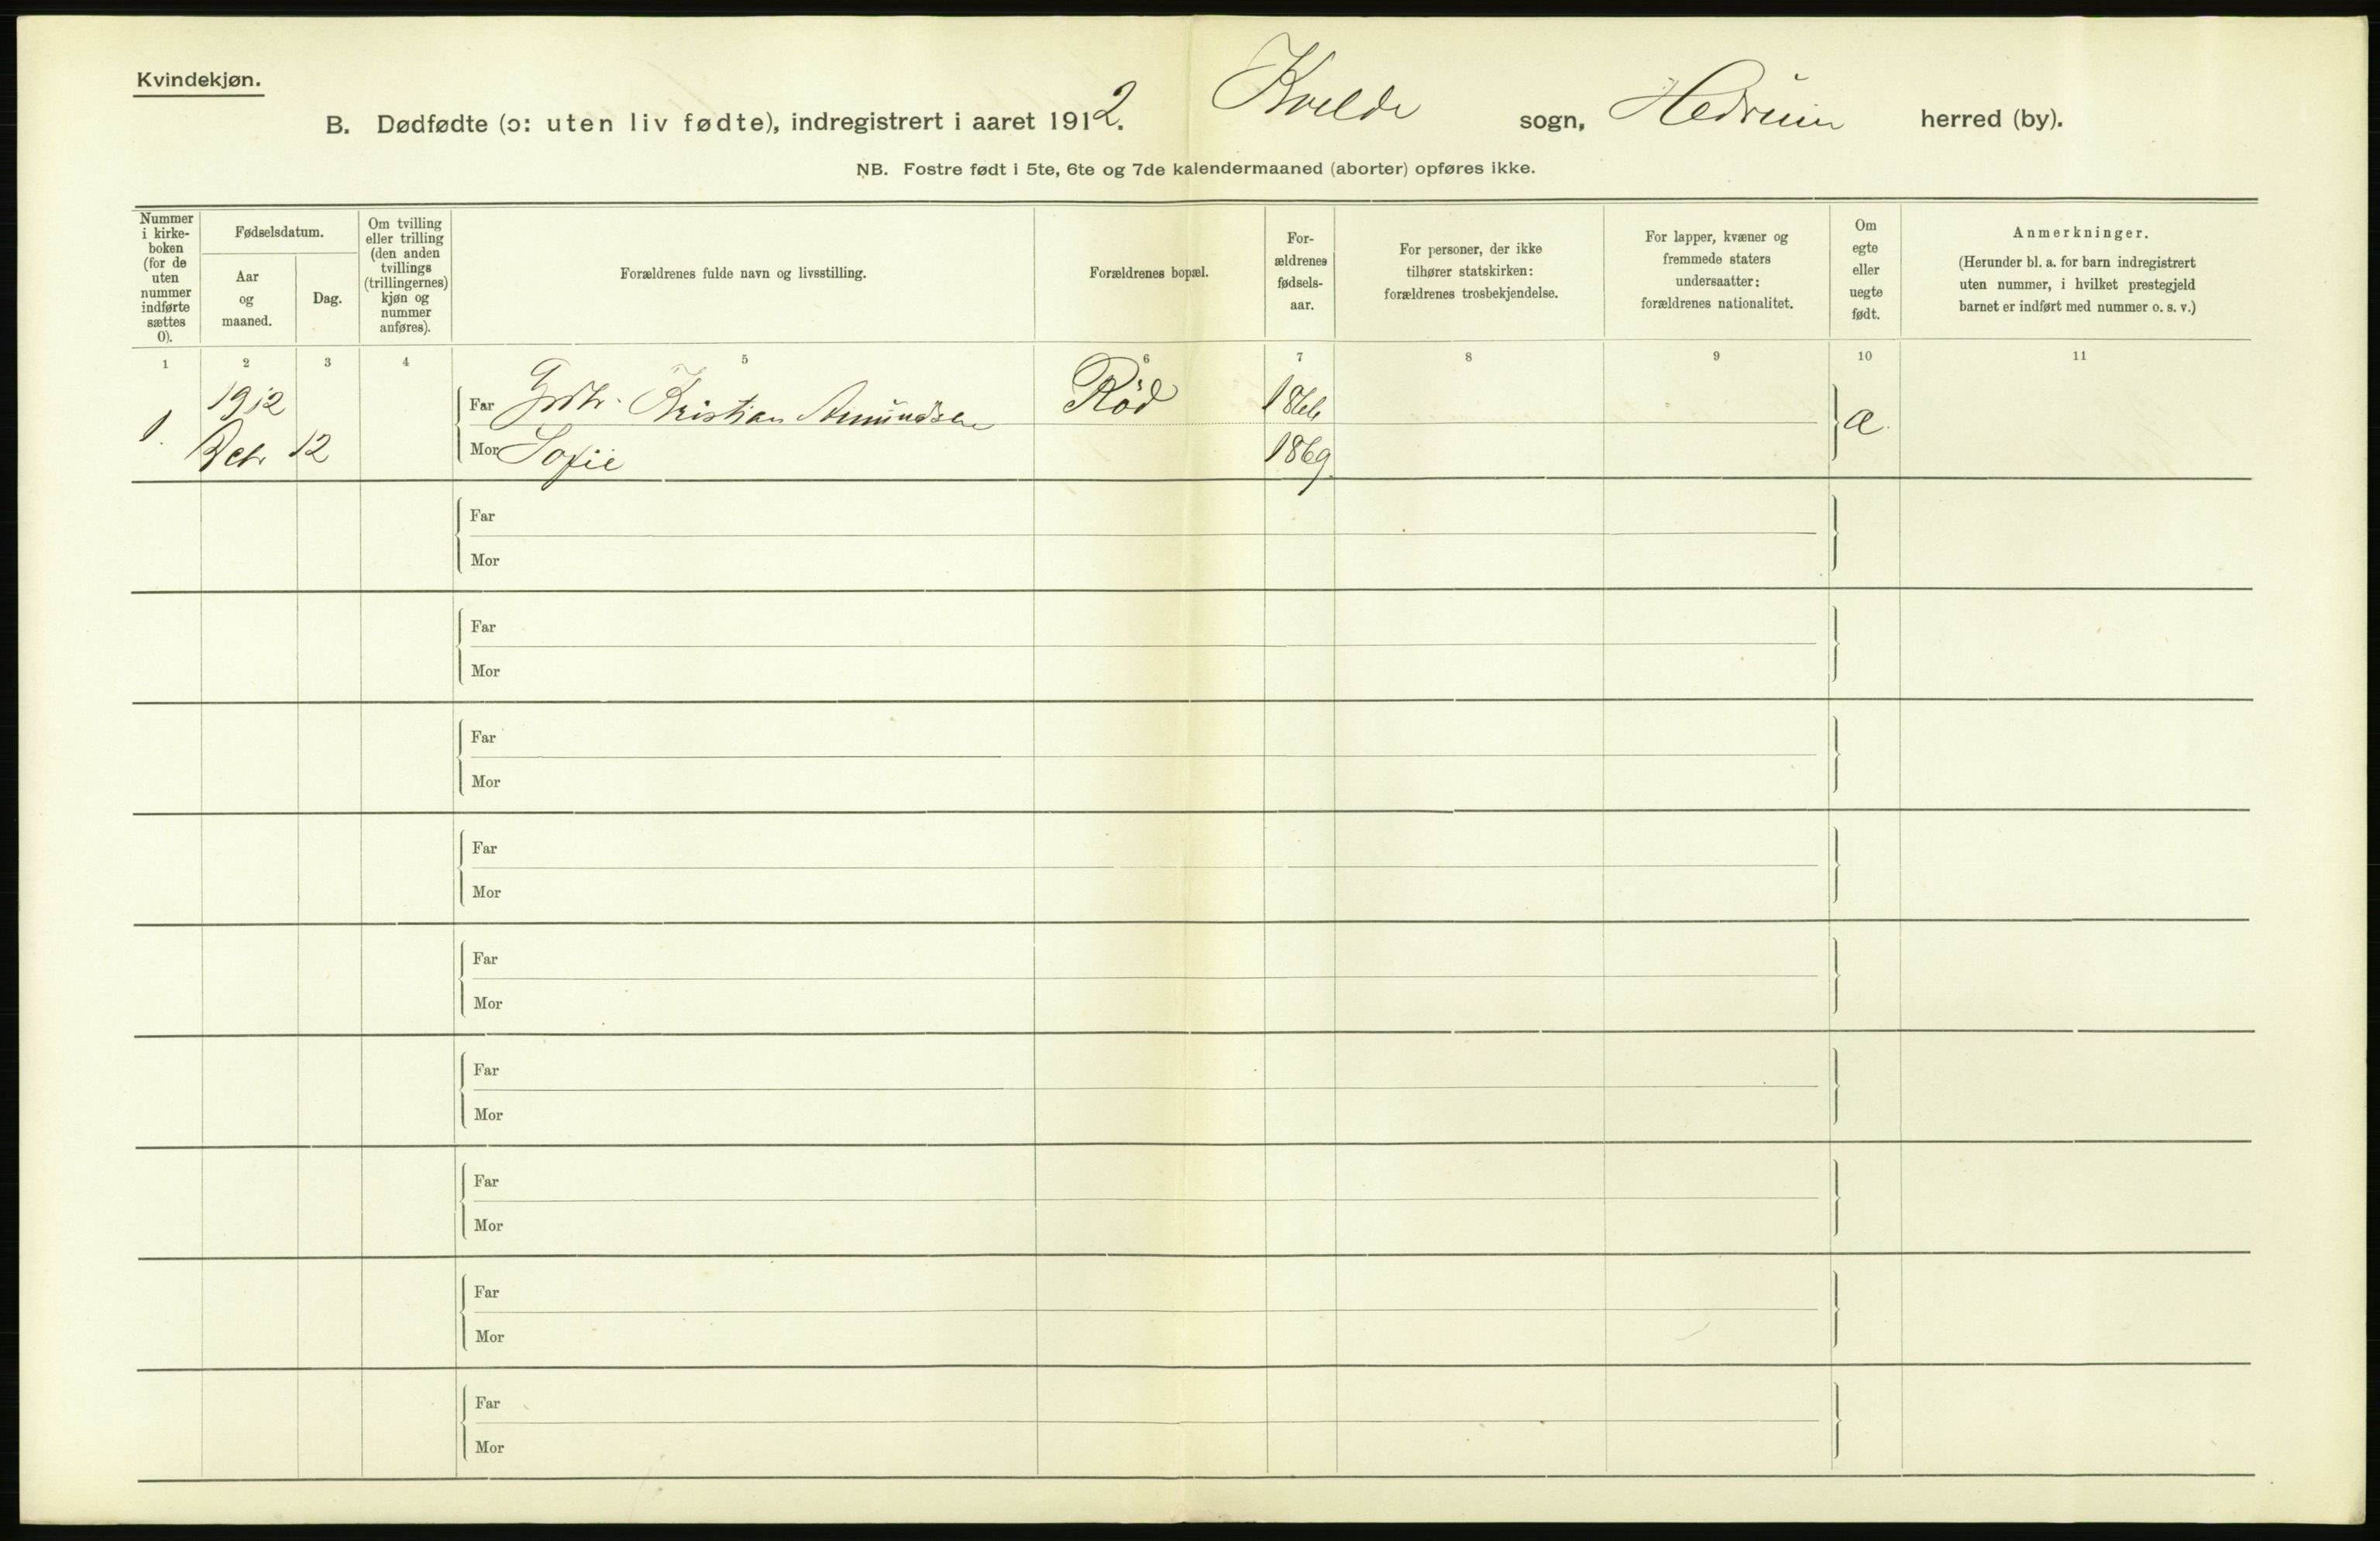 Kvindekjøn.
B. Dødfødte (ɔ: uten liv fødte), indregistrert i aaret 1912. Kvelde sogn, Hedrum herred (by).
NB. Fostre født i 5te, 6te og 7de kalendermaaned (aborter) opføres ikke.
Nummer
i kirke-
boken
(for de
uten
nummer
indførte
sættes
0).
Fødselsdatum.
Aar
og
maaned.
Dag.
Om tvilling
eller trilling
(den anden
tvillings
(trillingernes)
kjøn og
nummer
anføres).
Forældrenes fulde navn og livsstilling.
Forældrenes bopæl.
For-
ældrenes
fødsels-
aar.
For personer, der ikke
tilhører statskirken:
forældrenes trosbekjendelse.
For lapper, kvæner og
fremmede staters
undersaatter:
forældrenes nationalitet.
Om
egte
eller
uegte
født.
Anmerkninger.
(Herunder bl. a. for barn indregistrert
uten nummer, i hvilket prestegjeld
barnet er indført med nummer o. s. v.)
1 2 3 4 5 6 7 8 9 10 11
1. 1912 Far Kristian Amundsen Rød 1866 æ.
12 Mor Sofie 1869
Far
Mor
Far
Mor
Far
Mor
Far
Mor
Far
Mor
Far
Mor
Far
Mor
Far
Mor
Far
Mor